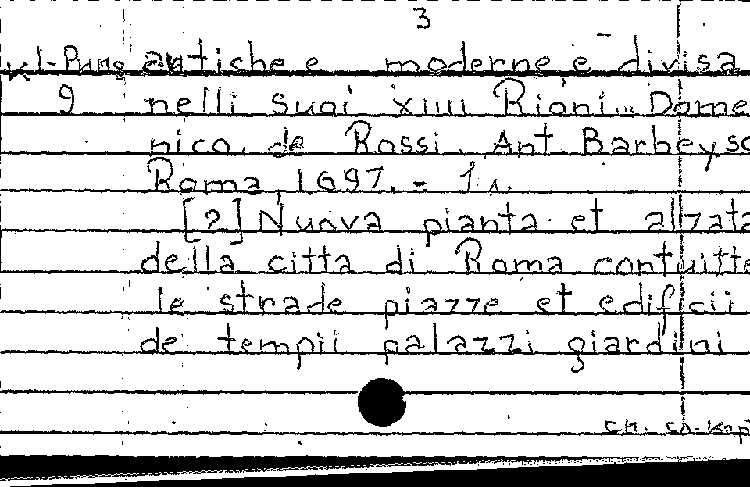 3
antiche e moderne e divisa
9 nelli suoi XIIII Rioni... Dome
nico de Rossi. Ant. Barbey sc
Roma, 1697. - 1
[2] Nuova pianta et alzata
della citta di Roma con tuitte
le strade piazze et edificii
de tempii palazzi giardini